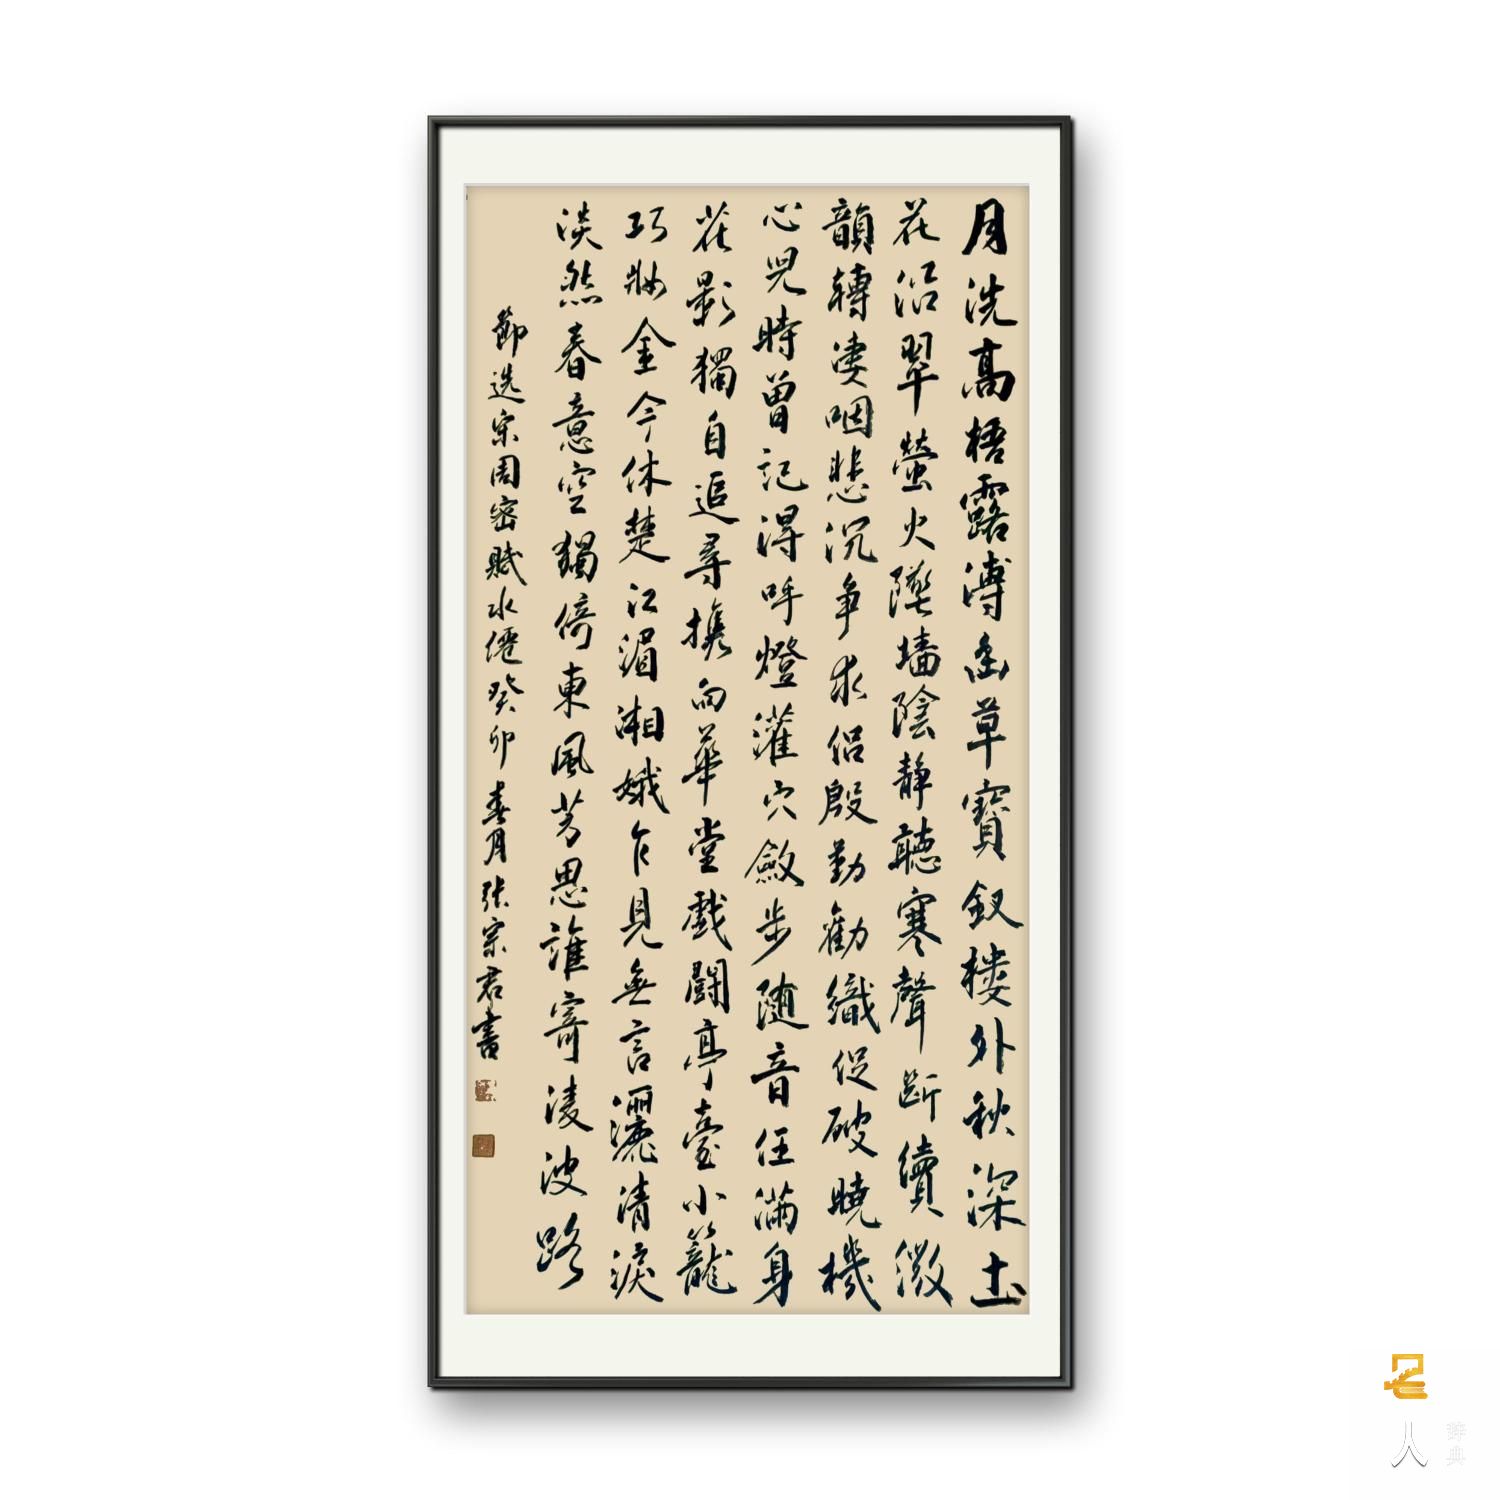 月洗高梧露漙幽草寶釵楼外秋深土
花沿翠螢火墜墙陰静聽寒聲断續微
韻轉凄咽悲沉争求侣殷勤勸織促破曉機
心兒時曾記得呼燈灌穴斂步随音任满身
花影獨自追尋携向華堂戲鬪亭臺小籠
巧妝金今休楚江湄湘娥乍見無言灑清淚
淡然春意空獨倚東風芳思誰寄凌波路
節选宋周密賦水僊癸卯春月张宗君書
人
辞典